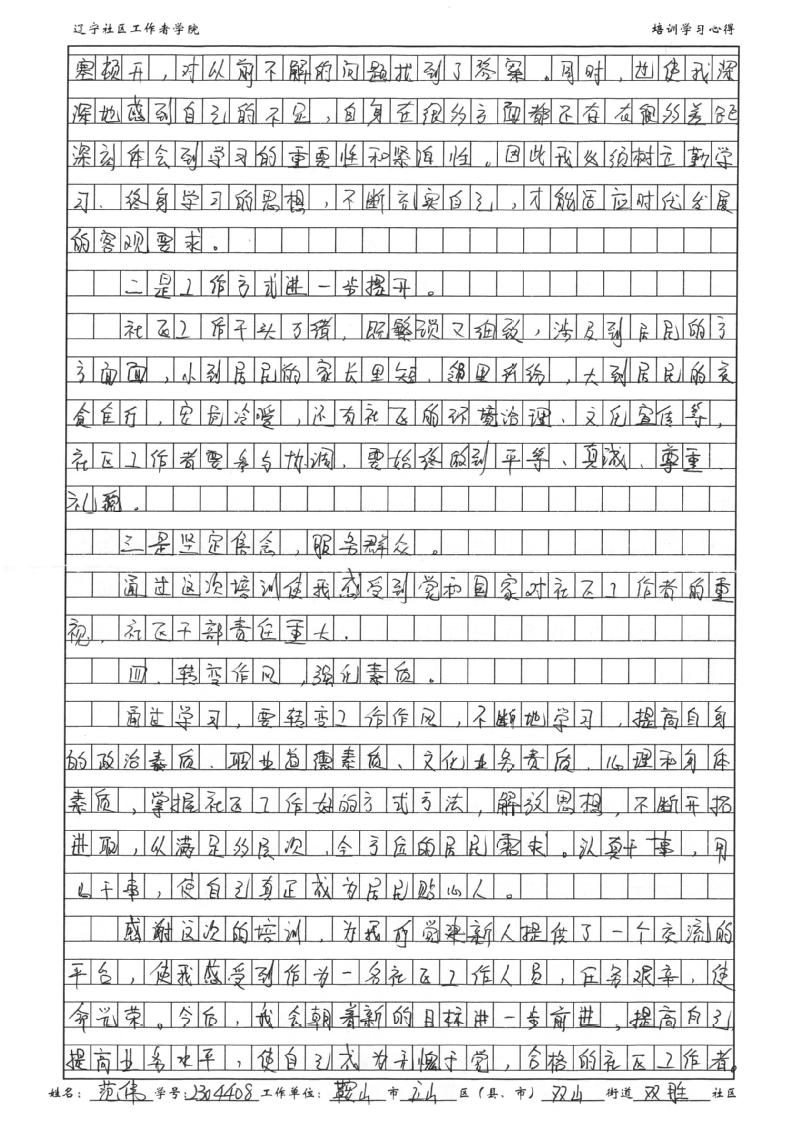 辽宁社区工作者学院 培训学习心得
塞顿开，对以前不解的问题找到了答案。同时，也使我深
深地感到自己的不足，自身在很多方面都还存在很多差距
深刻体会到学习的重要性和紧迫性。因此我必须树立勤学
习、终身学习的思想，不断充实自己，才能适应时代发展
的客观要求。
二是工作方式进一步提升。
社区工作千头万绪，既繁琐又细致，涉及到居民的方
方面面，小到居民的家长里短、邻里纠纷，大到居民的衣
食住行，安危冷暖，还有社区的环境治理、文化宣传等，
社区工作者要参与协调，要始终做到平等、真诚、尊重、
礼貌。
三是坚定信念，服务群众。
通过这次培训使我感受到党和国家对社区工作者的重
视，社区干部责任重大.
四、转变作风，强化素质。
通过学习，要转变工作作风，不断地学习，提高自身
的政治素质、职业道德素质、文化业务素质、心理和身体
素质，掌握社区工作好的方式方法，解放思想，不断开拓
进取，以满足多层次，全方位的居民需求。认真干事，用
心干事，使自己真正成为居民贴心人。
感谢这次的培训，为我所党建新人提供了一个交流的
平台，使我感受到作为一名社区工作人员，任务艰辛，使
命光荣。今后，我会朝着新的目标进一步前进，提高自己，
提高业务水平，使自己成为无愧于党，合格的社区工作者。
姓名：范伟 学号:2304408 工作单位：鞍山 市 立山 区（县、市）双山 街道 双胜 社区